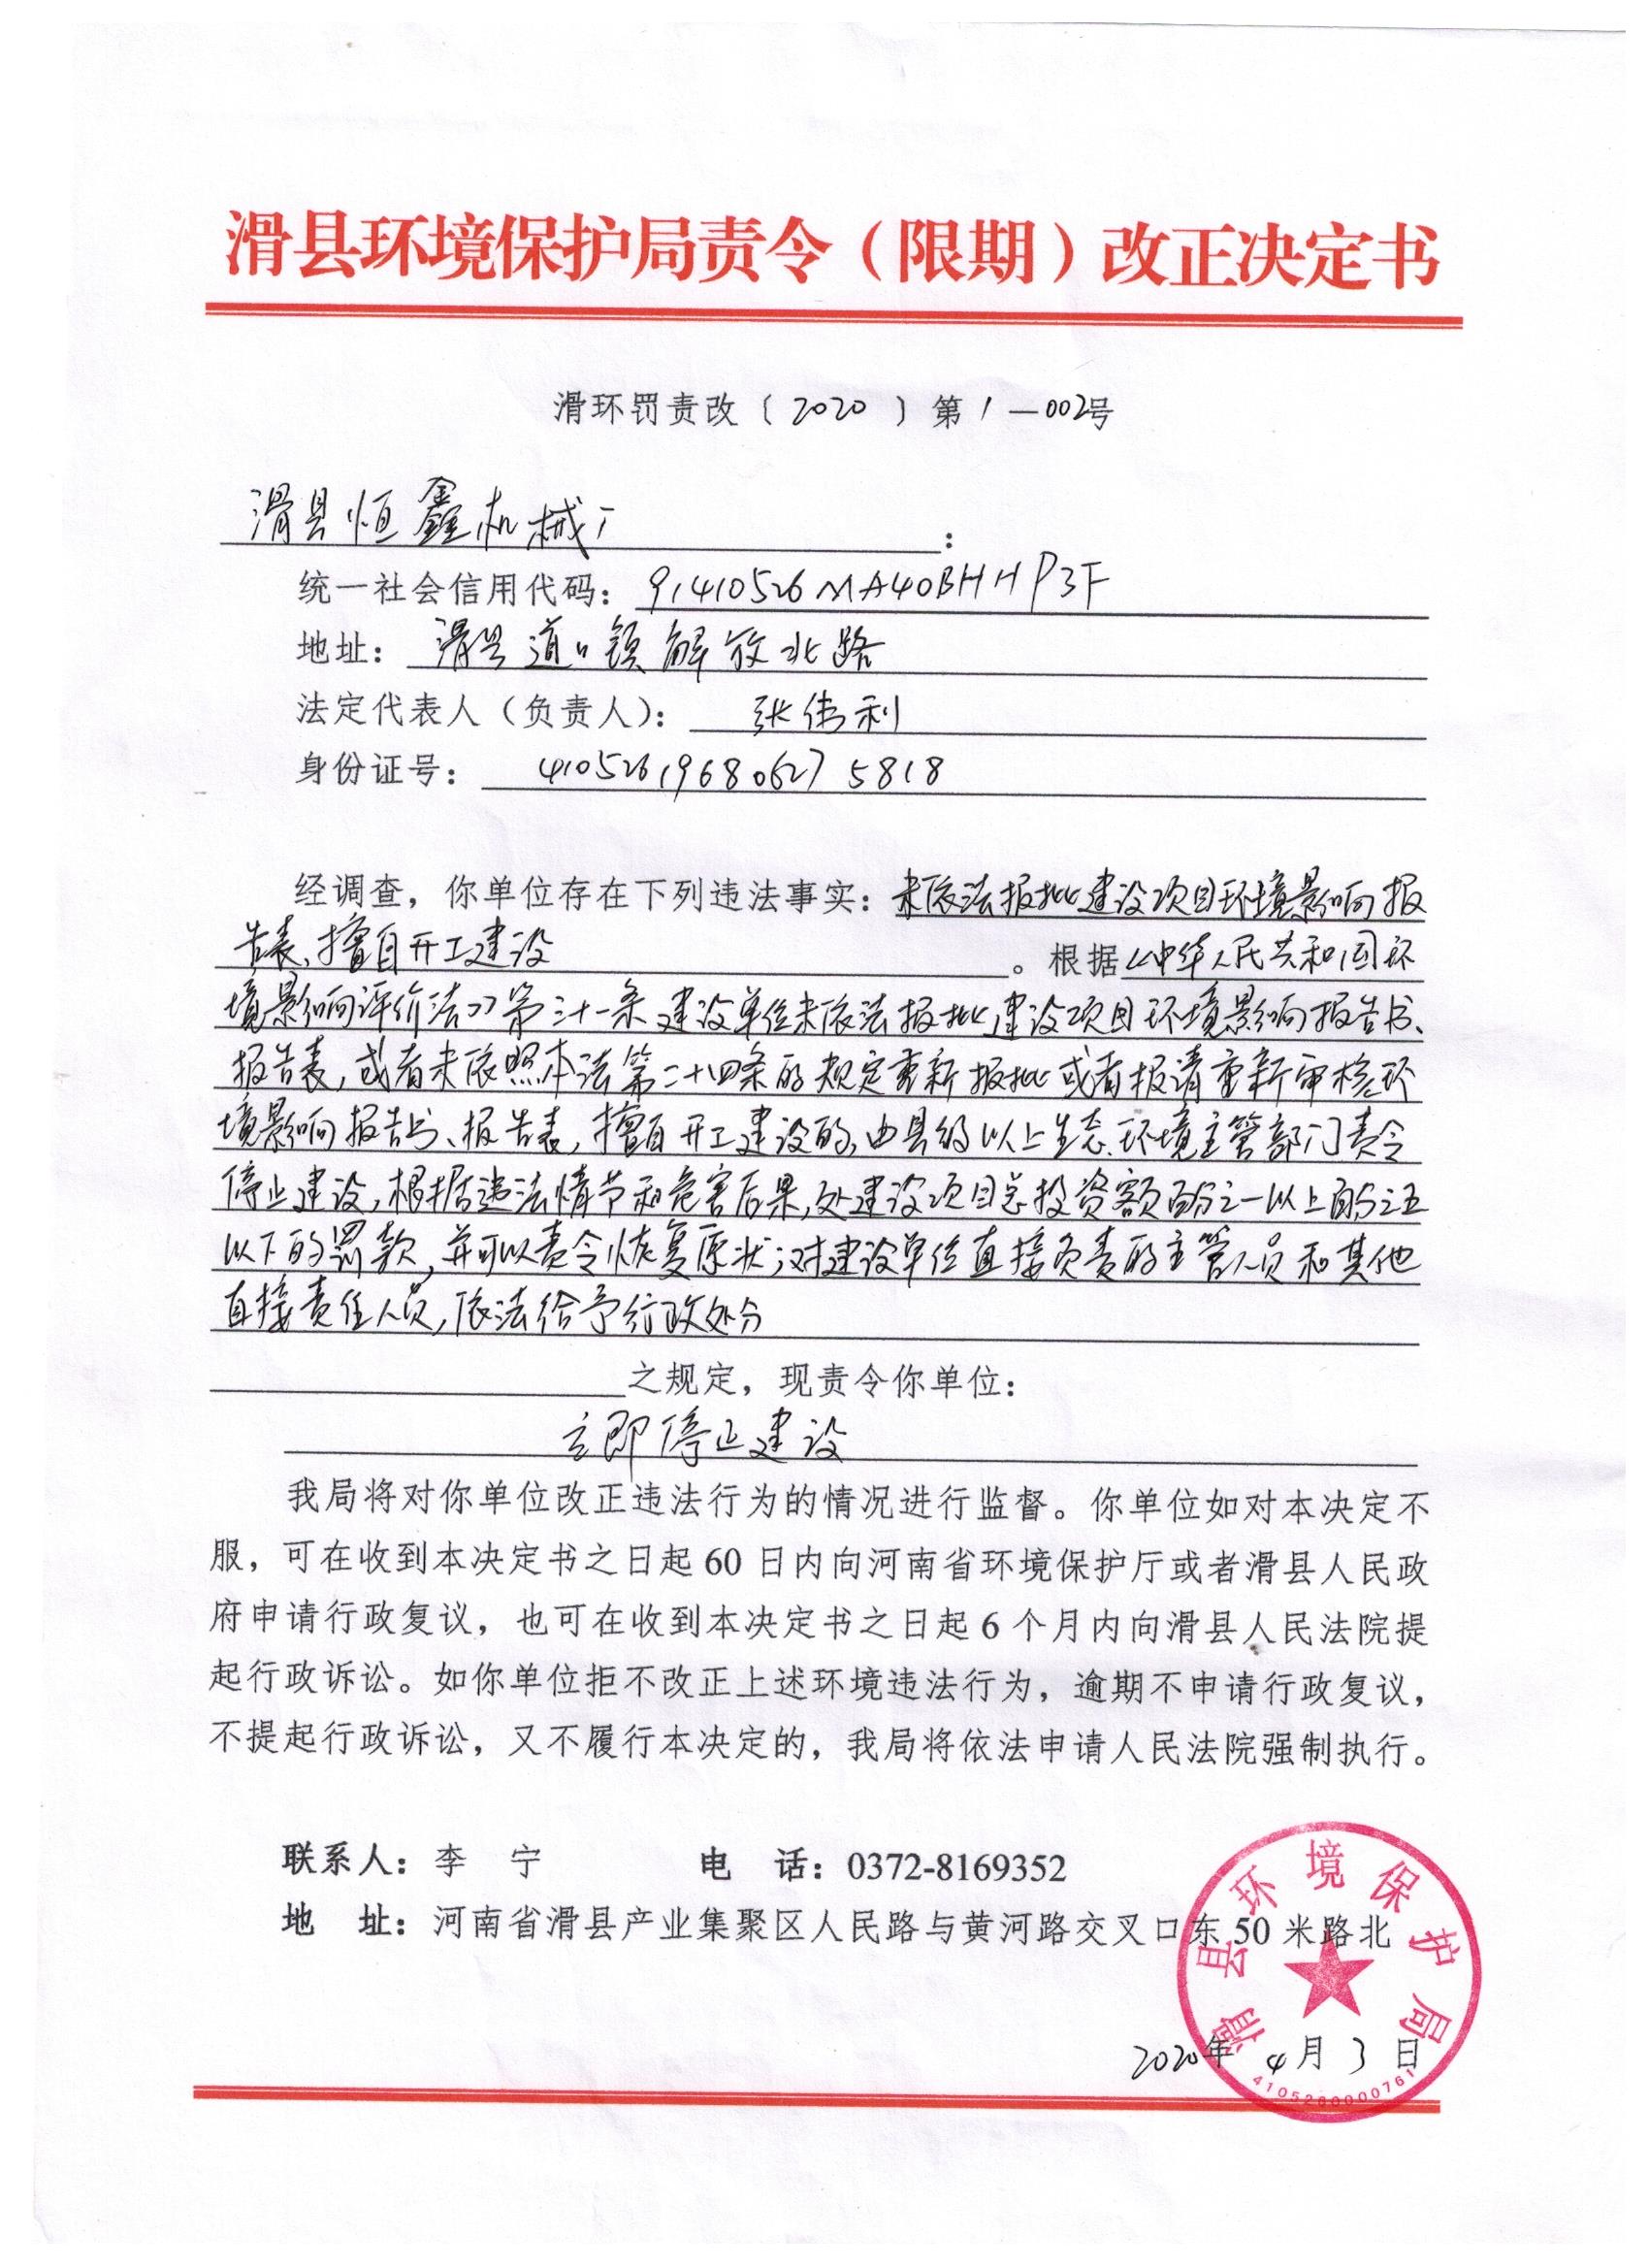 滑县环境保护局责令（限期）改正决定书
滑环罚责改〔2020〕第1—002号
滑县恒鑫机械厂：
统一社会信用代码：91410526MA40BHHP3F
地址：滑县道口镇解放北路
法定代表人（负责人）：张伟利
身份证号：410526196806275818
经调查，你单位存在下列违法事实：未依法报批建设项目环境影响报
告表、擅自开工建设。根据《中华人民共和国环
境影响评价法》第三十一条 建设单位未依法报批建设项目环境影响报告书、
报告表，或者未依照本法第二十四条的规定重新报批或者报请重新审核环
境影响报告书、报告表，擅自开工建设的，由县级以上生态环境主管部门责令
停止建设，根据违法情节和危害后果，处建设项目总投资额百分之一以上百分之五
以下的罚款，并可以责令恢复原状；对建设单位直接负责的主管人员和其他
直接责任人员，依法给予行政处分
之规定，现责令你单位：
立即停止建设
我局将对你单位改正违法行为的情况进行监督。你单位如对本决定不
服，可在收到本决定书之日起 60 日内向河南省环境保护厅或者滑县人民政
府申请行政复议，也可在收到本决定书之日起 6 个月内向滑县人民法院提
起行政诉讼。如你单位拒不改正上述环境违法行为，逾期不申请行政复议，
不提起行政诉讼，又不履行本决定的，我局将依法申请人民法院强制执行。
联系人：李 宁 电 话：0372-8169352
地 址：河南省滑县产业集聚区人民路与黄河路交叉口东 50 米路北
滑县环境保护局
2020年 4月 3日
4105260000761